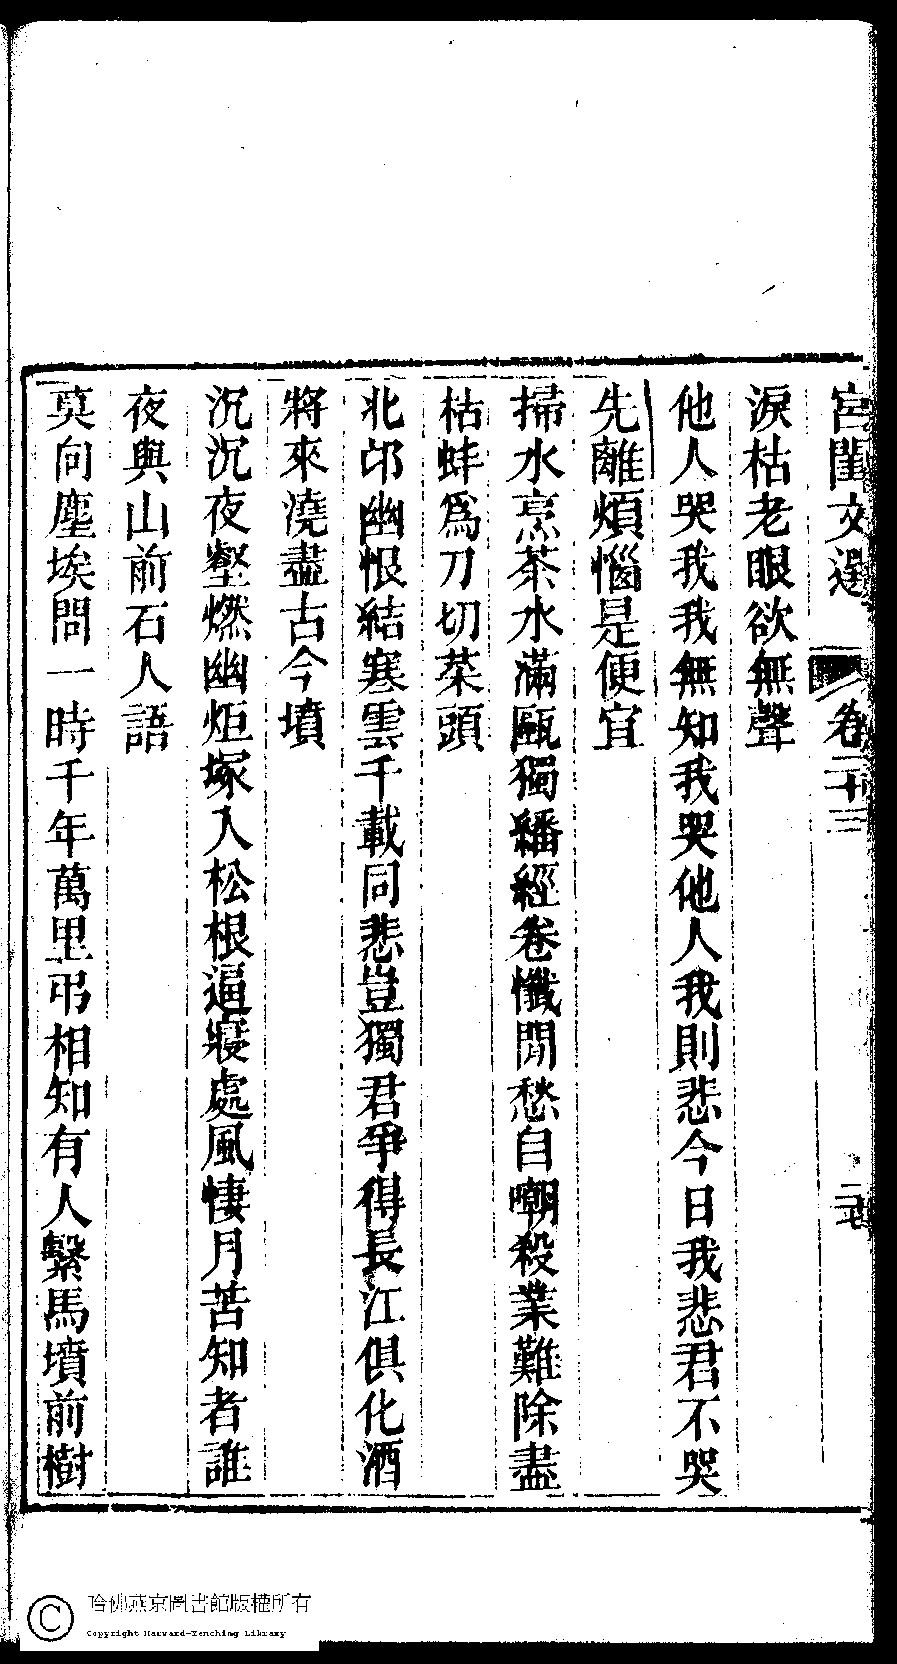 宮閨文選 卷二十三 二七
淚枯老眼欲無聲
他人哭我我無知我哭他人我則悲今日我悲君不哭
先離煩惱是便宜
掃水烹茶水滿甌獨繙經卷懺閒愁自嘲殺業難除盡
枯蚌爲刀切菜頭
北邙幽恨結寒雲千載同悲豈獨君爭得長江俱化酒
將來澆盡古今墳
沉沉夜壑燃幽炬塚入松根逼寢處風悽月苦知者誰
夜與山前石人語
莫向塵埃問一時千年萬里弔相知有人繫馬墳前樹
哈佛燕京圖書館版權所有
Copyright Harvard-Yenching Library